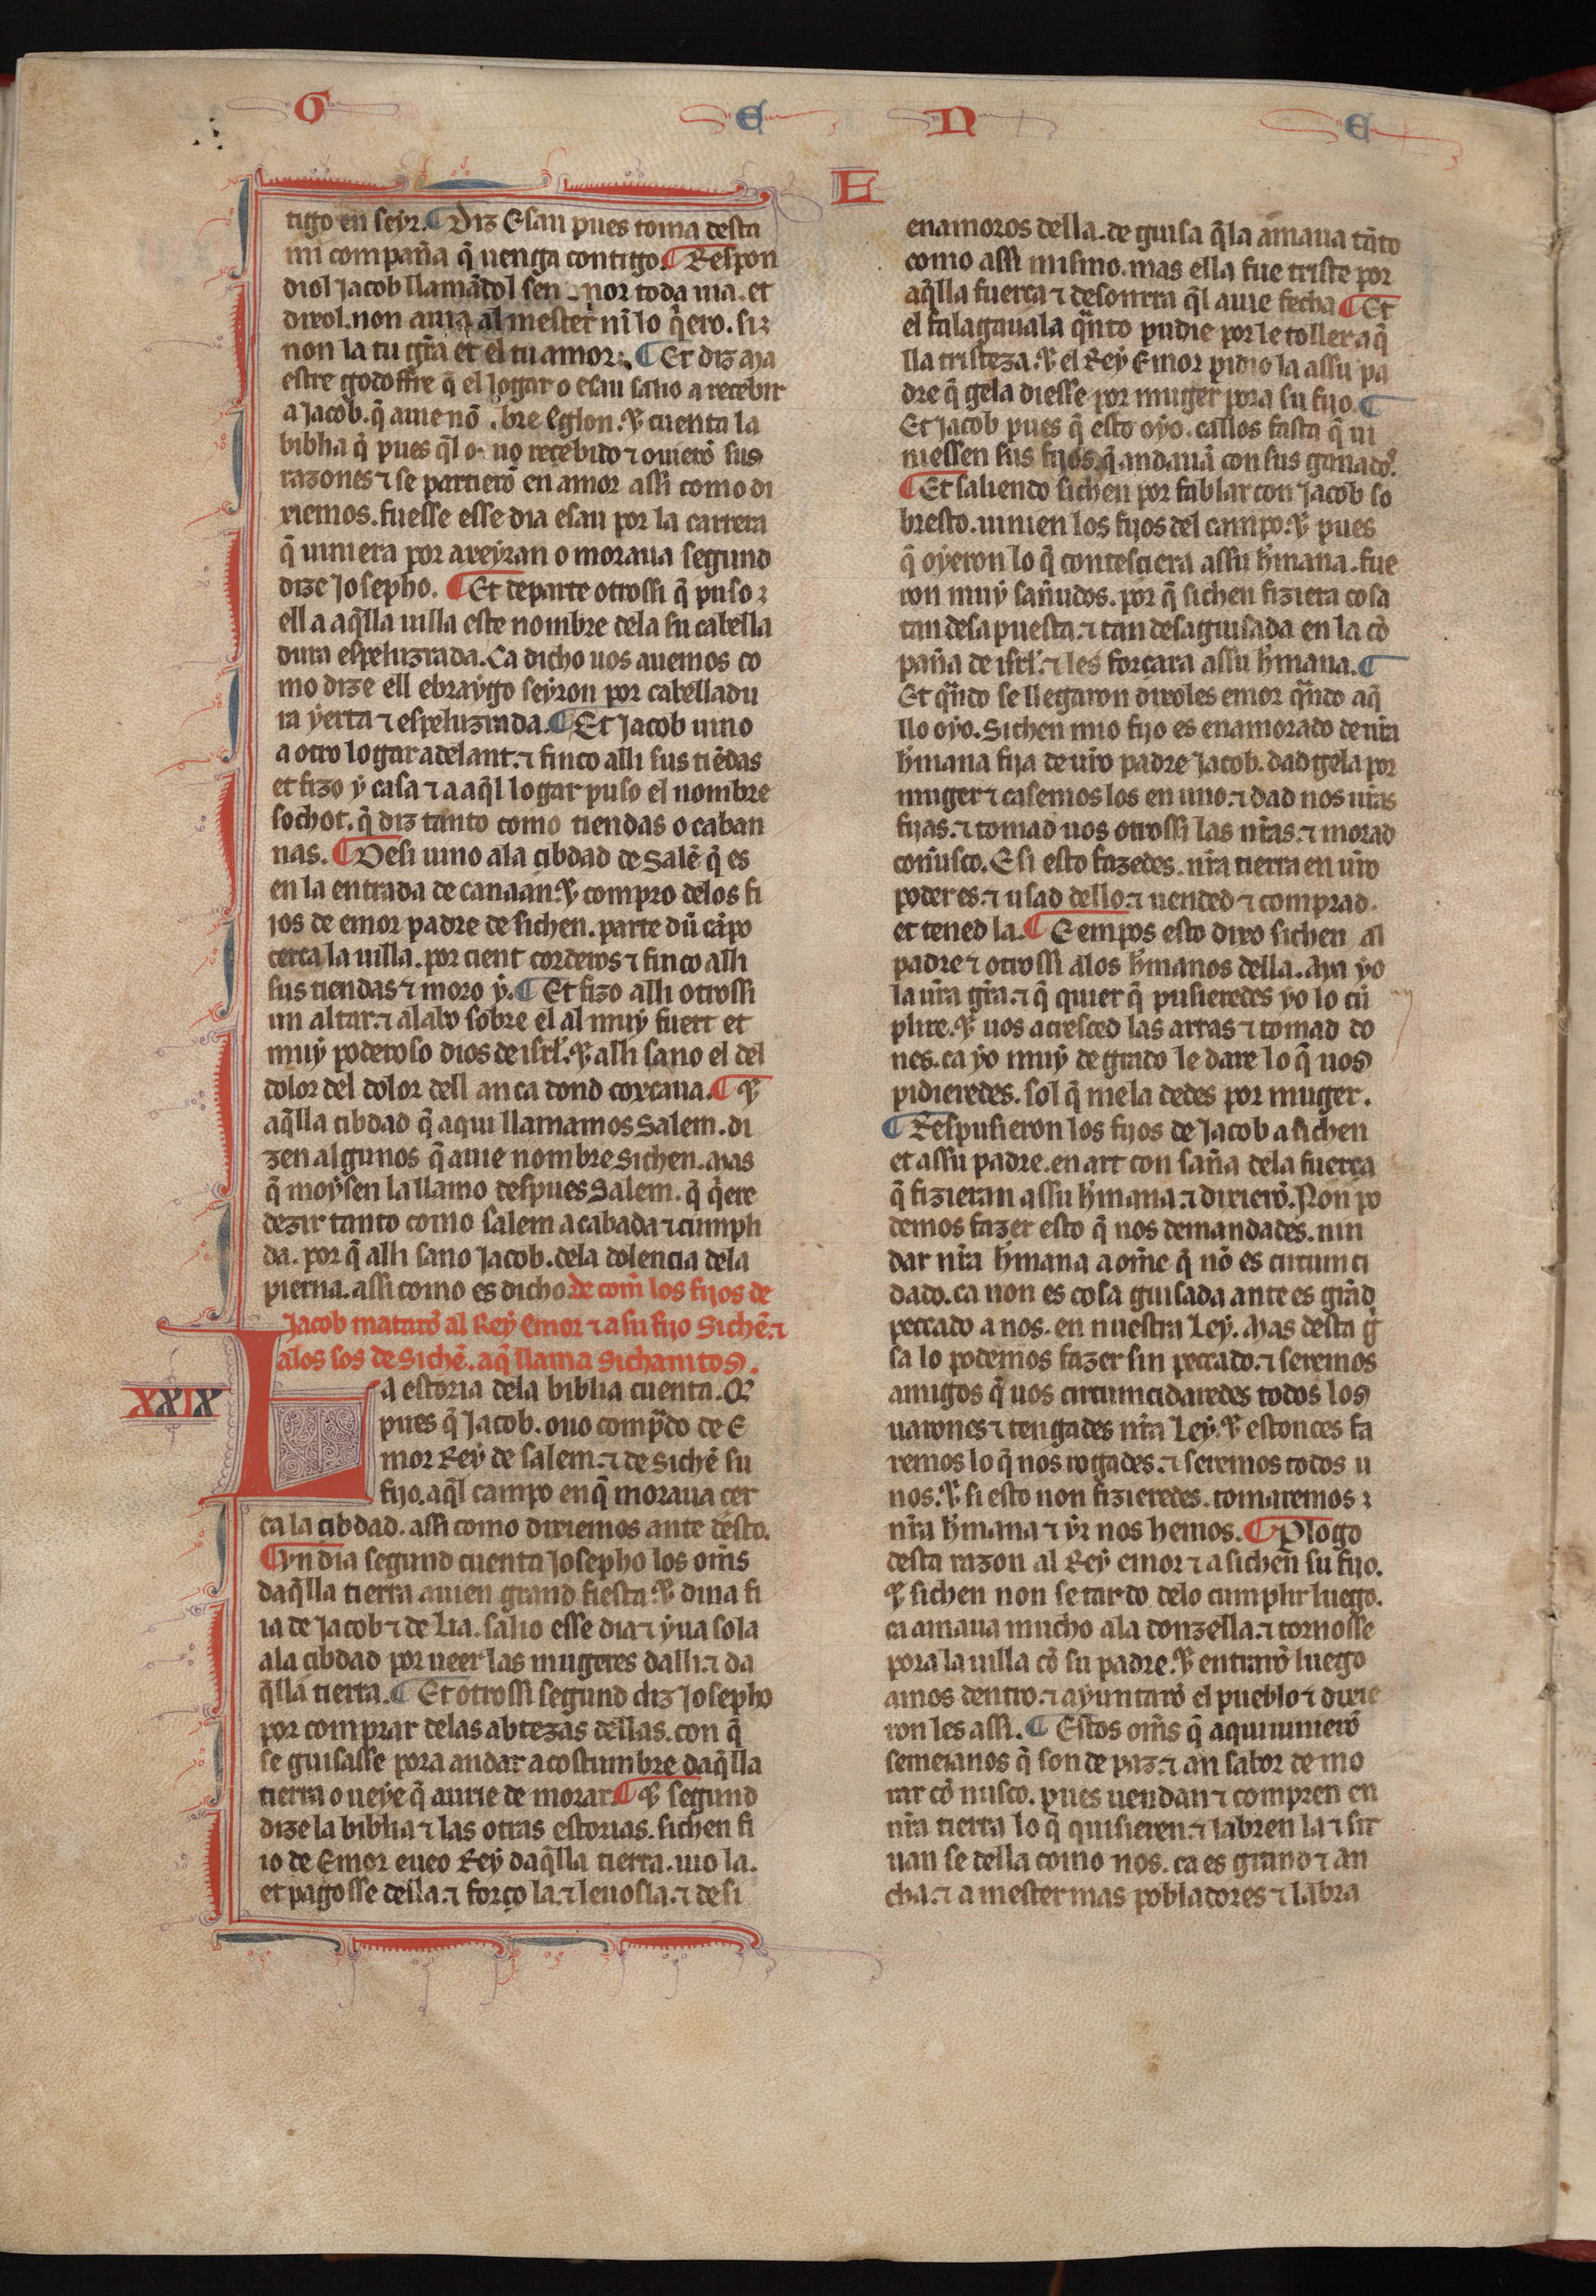 G E N E
tigo en seyr. ¶ Diz Esau pues toma desta
mi compaña q̃ uenga contigo. ¶ Respon
diol Jacob llamãdol sennor toda uia. et
dixol. non auia al mester nĩ lo q̃ero. si
non la tu gr̃a et el tu amor. ¶ Et diz ma
estre godoffre q̃ el logar o esau salio a recebir
a Jacob. q̃ auie nõbre Eglon. ⁊ cuenta la
biblia q̃ pues q̃l ouo recebido ⁊ ouierõ sus
razones ⁊ se partierõ en amor assi como di
xiemos. fuesse esse dia esau por la carrera
q̃ uiniera por a seyr an o moraua segund
dize Josepho. ¶ Et departe otrossi q̃ puso
ell a aq̃lla uilla este nombre dela su cabella
dura espeluzrada. Ca dicho uos auemos co
mo dize ell ebraygo seyron por cabelladu
ra yerta ⁊ espeluzrada. ¶ Et Jacob uino
a otro logar adelant. ⁊ finco alli sus tiẽdas
et fizo y casa ⁊ a aq̃l logar puso el nombre
sochot. q̃ diz tanto como tiendas o caban
nas. ¶ Desi uino ala cibdad de Salẽ q̃ es
en la entrada de canaan. ⁊ compro delos fi
jos de emor padre de sichen. parte dũ cãpo
cerca la uilla. por cient corderos ⁊ finco alli
sus tiendas ⁊ moro y. ¶ Et fizo alli otrossi
un altar. ⁊ alabo sobre el al muy fuert et
muy poderoso dios de isrl̃. ⁊ alli sano el del
dolor del dolor dell anca dond coxeaua. ¶ ⁊
aq̃lla cibdad q̃ aqui llamamos Salem. di
zen algunos q̃ auie nombre Sichen. Mas
q̃ moysen la llamo despues Salem. q̃ q̃ere
dezir tanto como salem acabada ⁊ cumpli
da. por q̃ alli sano Jacob. dela dolencia dela
pierna. assi como es dicho de com̃ los fijos de
Jacob matarõ al Rey Emor ⁊ a su fijo Sichẽ. ⁊
alos sos de Sichẽ. aq̃ llama sichamitos.
XXIX
La estoria dela biblia cuenta. Q̃
pues q̃ Jacob. ouo comp̃do de E
mor Rey de salem. ⁊ de Sichẽ su
fijo. aq̃l campo en q̃ moraua cer
ca la cibdad. assi como dixiemos ante desto.
¶ Un dia segund cuenta Josepho los om̃s
daq̃lla tierra auien grand fiesta. ⁊ dina fi
ia de Jacob ⁊ de Lia. salio esse dia ⁊ yua sola
ala cibdad por ueer las mugeres dalli. ⁊ da
q̃lla tierra. ¶ Et otrossi segund diz Josepho
por comprar delas abtezas dellas. con q̃
se guisasse pora andar a costumbre daq̃lla
tierra o ueye q̃ aurie de morar. ¶ ⁊ segund
dize la biblia ⁊ las otras estorias. sichen fi
io de Emor eueo Rey daq̃lla tierra. uio la.
et pagosse della. ⁊ forço la. ⁊ leuosla. ⁊ desi
enamoros della. de guisa q̃ la amaua tãto
como assi mismo. mas ella fue triste por
aq̃lla fuerça ⁊ desonrra q̃l auie fecha ¶ Et
el falagauala q̃nto pudie por le toller aq̃
lla tristeza. ⁊ el Rey Emor pidio la assu pa
dre q̃ gela diesse por muger pora su fijo. ¶
Et Jacob pues q̃ esto oyo. callos fasta q̃ ui
niessen sus fijos q̃ andauã con sus ganados.
¶ Et saliendo sichen por fablar con Jacob so
bresto. uinien los fijos del campo. ⁊ pues
q̃ oyeron lo q̃ contesciera assu h̃mana. fue
ron muy sañudos. por q̃ sichen fiziera cosa
tan desapuesta. ⁊ tan desaguisada en la cõ
paña de isrl̃. ⁊ les forçara assu h̃mana. ¶
Et q̃ndo se llegaron dixoles emor q̃ndo aq̃
llo oyo. Sichen mio fijo es enamorado de ur̃a
h̃mana fija de ur̃o padre Jacob. dad gela por
muger ⁊ casemos los en uno. ⁊ dad nos ur̃as
fijas. ⁊ tomad uos otrossi las nr̃as. ⁊ morad
connusco. E si esto fazedes. nr̃a tierra en ur̃o
poder es. ⁊ usad dello. ⁊ uended ⁊ comprad.
et tened la. ¶ E empos esto dixo sichen al
padre ⁊ otrossi alos h̃manos della. Aya yo
la ur̃a gr̃a. ⁊ q̃ quier q̃ pusieredes yo lo cũ
plire. ⁊ uos acresced las arras ⁊ tomad do
nes. ca yo muy de grado le dare lo q̃ uos
pidieredes. sol q̃ me la dedes por muger.
¶ Respusieron los fijos de Jacob a sichen
et assu padre. en art con saña dela fuerça
q̃ fizieran assu h̃mana. ⁊ dixierõ. Non po
demos fazer esto q̃ nos demandades. nin
dar nr̃a h̃mana a om̃e q̃ nõ es circunci
dado. ca non es cosa guisada ante es grãd
peccado a nos. en nuestra Ley. Mas desta g̃
sa lo podemos fazer sin peccado. ⁊ seremos
amigos q̃ uos circuncidaredes todos los
uarones ⁊ tengades nr̃a Ley. ⁊ estonces fa
remos lo q̃ nos rogades. ⁊ seremos todos u
nos. ⁊ si esto non fizieredes. tomaremos
nr̃a h̃mana ⁊ yr nos hemos. ¶ Plogo
desta razon al Rey emor ⁊ a sichen su fijo.
⁊ sichen non se tardo delo cumplir luego.
ca amaua mucho ala donzella. ⁊ tornosse
pora la uilla cõ su padre. ⁊ entrarõ luego
amos dentro. ⁊ ayuntarõ el pueblo ⁊ dixie
ron les assi. ¶ Estos om̃s q̃ aqui uinierõ
semeianos q̃ son de paz. ⁊ an sabor de mo
rar cõ nusco. pues uendan ⁊ compren en
nr̃a tierra lo q̃ quisieren. ⁊ labren la ⁊ sir
uan se della como nos. ca es grand ⁊ an
cha. ⁊ a mester mas pobladores ⁊ labra